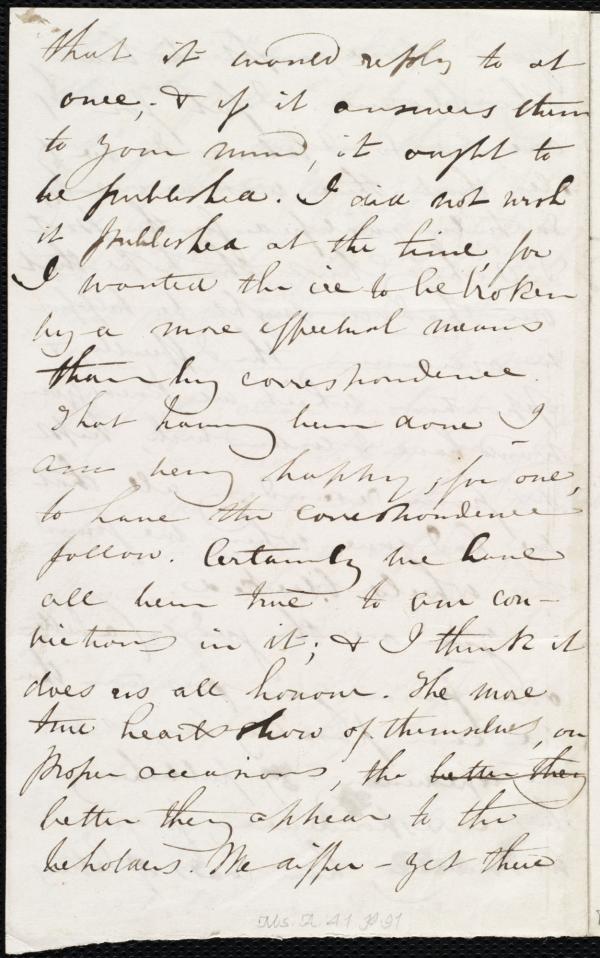 that it would reply to at
once, & if it answers them
to your mind, it ought to
be published. I did not wish
it published at the time, for
I wanted the ice to be broken
by a more effectual means
than by correspondence.
That having been done I
am very happy, for one,
to have the correspondence
follow. Certainly we have
all been true to our con-
victions in it; & I think it
does us all honour. The more
true hearts show of themselves, on
proper occasions, the better they
better they appear to the
beholders. We differ - yet there
Ms. A. 4.1 p.91